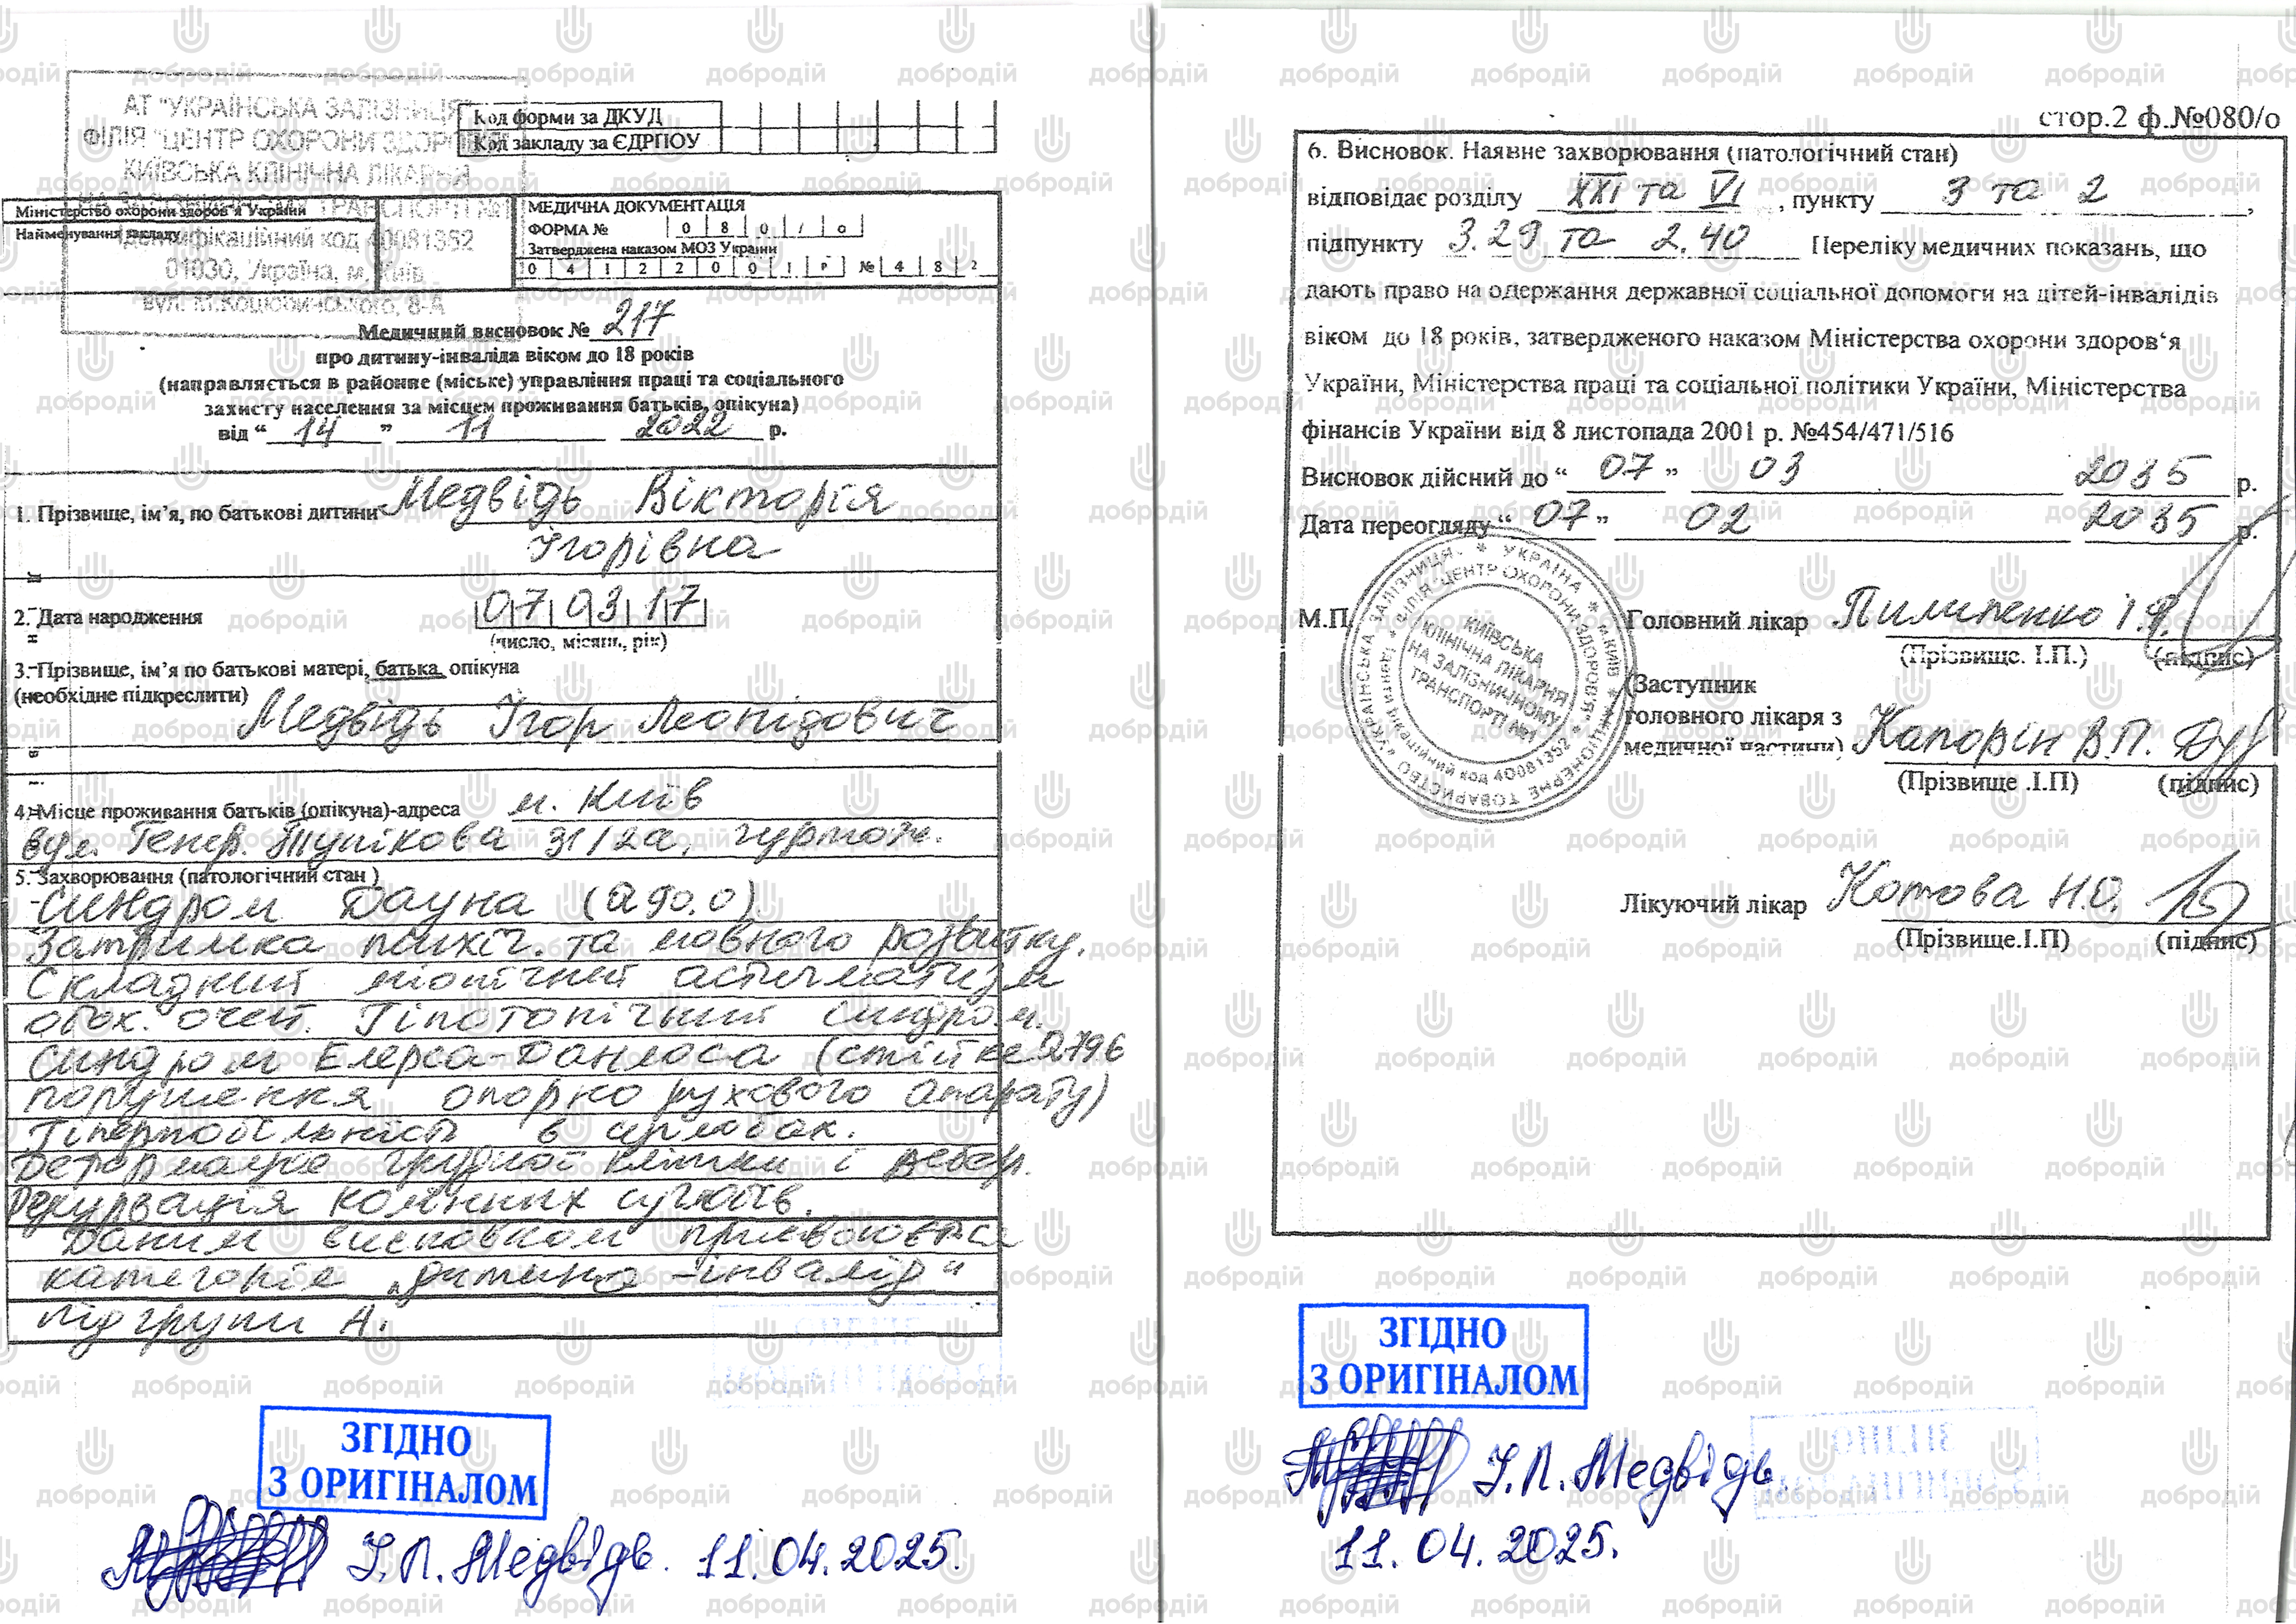 АТ "УКРАЇНСЬКА ЗАЛІЗНИЦЯ"
ФІЛІЯ "ЦЕНТР ОХОРОНИ ЗДОРОВ'Я"
КИЇВСЬКА КЛІНІЧНА ЛІКАРНЯ
НА ЗАЛІЗНИЧНОМУ ТРАНСПОРТІ №1
Ідентифікаційний код 40081352
01030, Україна, м. Київ
вул. М.Коцюбинського, 8-А
Код форми за ДКУД
Код закладу за ЄДРПОУ
Міністерство охорони здоров'я України
Найменування закладу
МЕДИЧНА ДОКУМЕНТАЦІЯ
ФОРМА № 0 8 0 / о
Затверджена наказом МОЗ України
0 4 1 2 2 0 0 1 р № 4 8 2
Медичний висновок № 217
про дитину-інваліда віком до 18 років
(направляється в районне (міське) управління праці та соціального
захисту населення за місцем проживання батьків, опікуна)
від “ 14 ” 11 2022 р.
1. Прізвище, ім’я, по батькові дитини Медвідь Вікторія
Ігорівна
2. Дата народження 07 03 17
(число, місяць, рік)
3. Прізвище, ім’я по батькові матері, батька, опікуна
(необхідне підкреслити)
Медвідь Ігор Леонідович
4. Місце проживання батьків (опікуна)-адреса м. Київ
вул. Генер. Тупікова 31/2а, гуртож.
5. Захворювання (патологічний стан )
Синдром Дауна (Q 90.0).
Затримка психіч. та мовного розвитку.
Складний міопічний астигматизм
обох. очей. Гіпотонічний синдром.
Синдром Елерса-Данлоса (стійке Q79.6
порушення опорно рухового апарату)
Гіпермобільність в суглобах.
Деформація грудної клітки і ребер.
Рекурвація колінних суглобів.
Даним висновком
категорія „дитина-інвалід“
підгрупи А.
ЗГІДНО
З ОРИГІНАЛОМ
І.Л. Медвідь. 11.04.2025.
стор.2 ф.№080/о
6. Висновок. Наявне захворювання (патологічний стан)
відповідає розділу XXI та VI , пункту 3 та 2 ,
підпункту 3.29 та 2.40 Переліку медичних показань, що
дають право на одержання державної соціальної допомоги на дітей-інвалідів
віком до 18 років, затвердженого наказом Міністерства охорони здоров‘я
України, Міністерства праці та соціальної політики України, Міністерства
фінансів України від 8 листопада 2001 р. №454/471/516
Висновок дійсний до “ 07 ” 03 2035 р.
Дата переогляду “ 07 ” 02 2035 р.
М.П.
УКРАЇНА * м.КИЇВ * АКЦІОНЕРНЕ ТОВАРИСТВО "УКРАЇНСЬКА ЗАЛІЗНИЦЯ"
ФІЛІЯ "ЦЕНТР ОХОРОНИ ЗДОРОВ'Я" * Ідентифікаційний код 40081352
КИЇВСЬКА
КЛІНІЧНА ЛІКАРНЯ
НА ЗАЛІЗНИЧНОМУ
ТРАНСПОРТІ №1
Головний лікар Пилипенко І.Я.
(Прізвище. І.П.) (підпис)
(Заступник
головного лікаря з
медичної частини) Капорін В.П.
(Прізвище .І.П) (підпис)
Лікуючий лікар Котова Н.О.
(Прізвище.І.П) (підпис)
ЗГІДНО
З ОРИГІНАЛОМ
І.Л. Медвідь
11.04.2025.
добродій